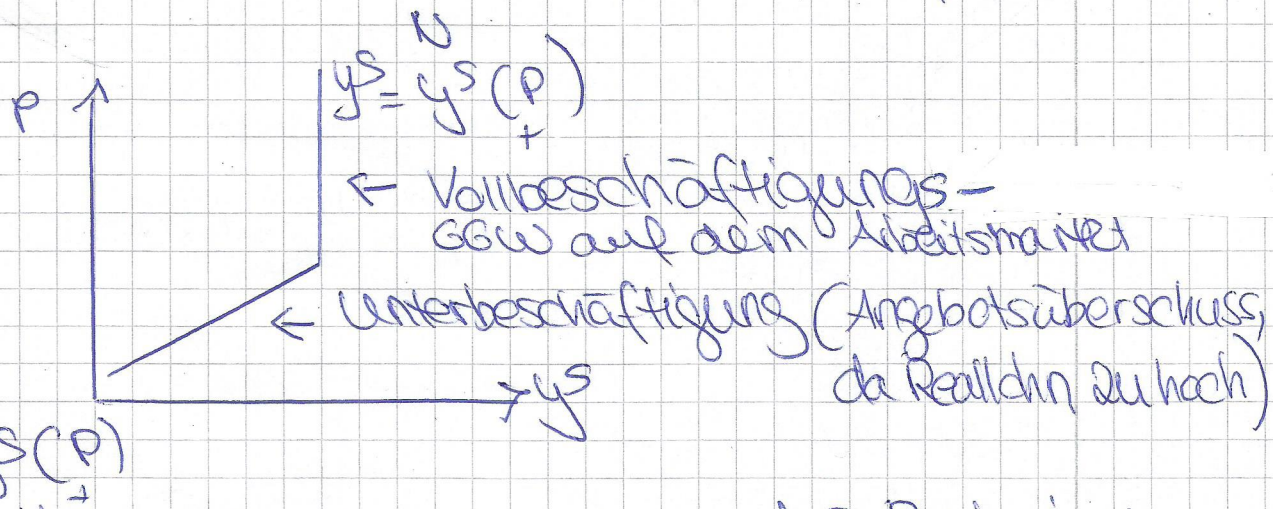 N
P
yˢ = yˢ(P)
+
← Vollbeschäftigungs-
GGW auf dem Arbeitsmarkt
← Unterbeschäftigung (Angebotsüberschuss,
da Reallohn zu hoch)
yˢ
S(P)
+